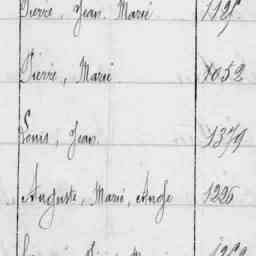 Pierre, Jean Marie
Pierre, Marie 1052
Louis, Jean. 1379
Auguste, Marie, Ange 1226